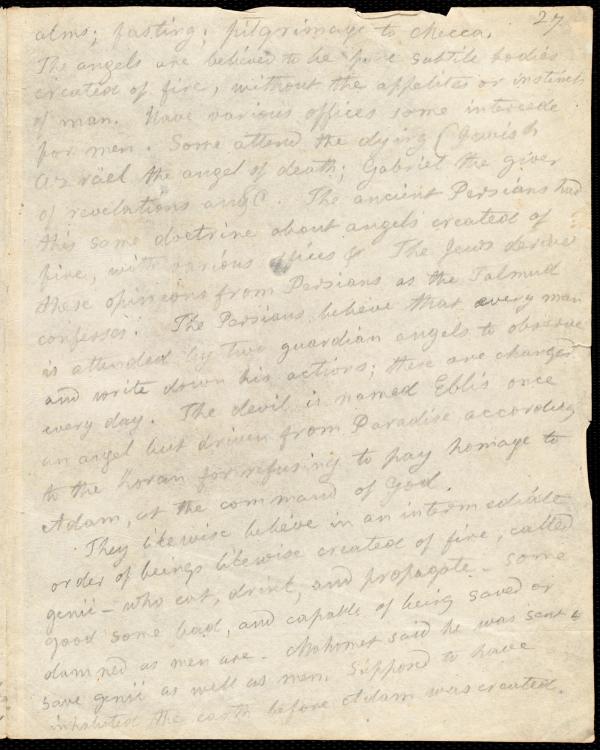 27
alms; fasting; pilgrimage to Mecca.
The angels are believed to be pure subtile bodies
created of fire, without the appetites or instincts
of man. Have various offices some intercede
for men. Some attend the dying (Jewish
Azrael the angel of death; Gabriel the giver
of revelations &c. The ancient Persians had
this same doctrine about angels created of
fire, with various offices &c The Jews derive
these opinions from Persians as the Talmud
confesses. The Persians believe that every man
is attended by two guardian angels to observe
and write down his actions; these are changed
every day. The devil is named Eblis once
an angel but driven from Paradise according
to the Koran for refusing to pay homage to
Adam, at the command of God.
They likewise believe in an intermediate
order of beings likewise created of fire, called
genii – who eat, drink, and propagate – some
good some bad, and capable of being saved or
damned as men are – Mahomet said he was sent to
save genii as well as men. Supposed to have
inhabited the earth before Adam was created.